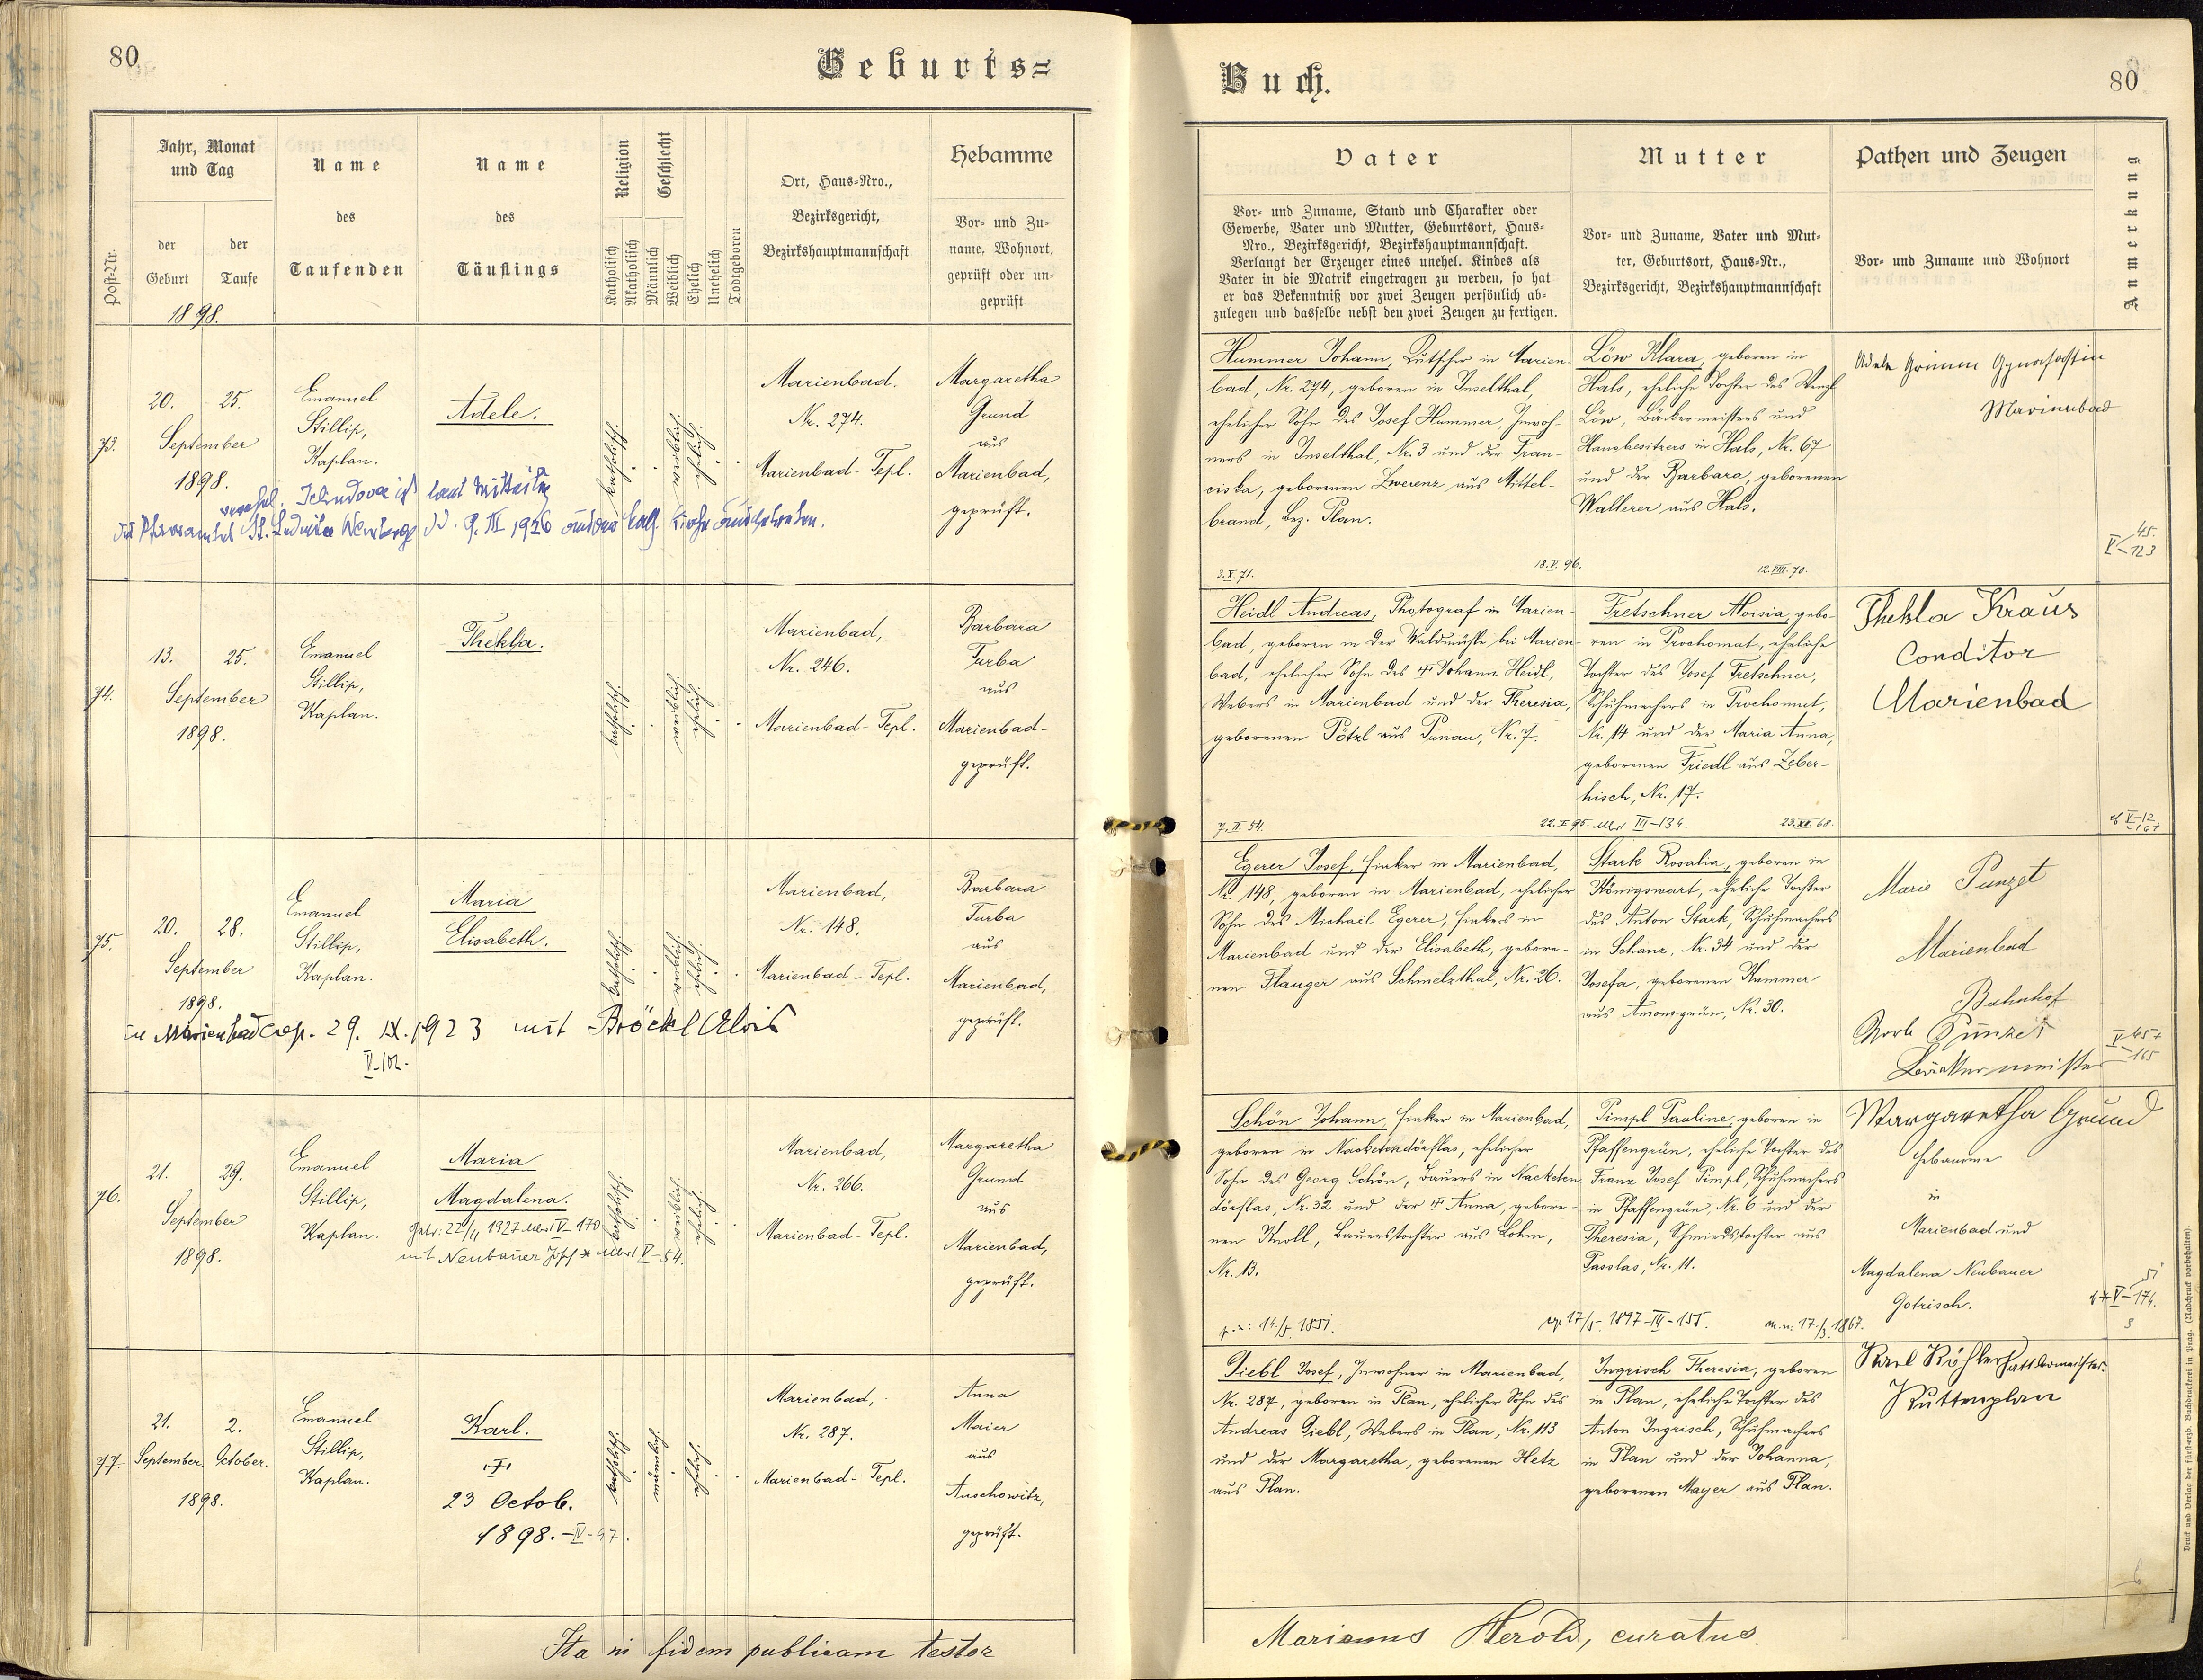 80
Geburts=
Post-Nr.
Jahr, Monat
und Tag
der
Geburt
der
Taufe
1898.
Name
des
Taufenden
Name
des
Täuflings
Religion
Katholisch
Akatholisch
Geschlecht
Männlich
Weiblich
Ehelich
Unehelich
Todtgeboren
Ort, Haus=Nro.,
Bezirksgericht,
Bezirkshauptmannschaft
Hebamme
Vor= und Zu=
name, Wohnort,
geprüft oder un=
geprüft
73.
20. 25.
September
1898.
Emanuel
Stillip,
Kaplan.
Adele.
katholisch.
weiblich.
ehelich.
Marienbad.
Nr. 274.
Marienbad-Tepl.
Margaretha
Grund
aus
Marienbad,
geprüft.
verehel. ist laut Mitteilg
des Pfarramtes St. Ludmila Weinberge dd. 9. III 1926 aus der kath. Kirche ausgetreten.
74.
13. 25.
September
1898.
Emanuel
Stillip,
Kaplan.
Thekla.
katholisch.
weiblich.
ehelich.
Marienbad,
Nr. 246.
Marienbad-Tepl.
Barbara
Turba
aus
Marienbad-
geprüft.
75.
20. 28.
September
1898.
Emanuel
Stillip,
Kaplan.
Maria
Elisabeth.
katholisch.
weiblich.
ehelich.
Marienbad,
Nr. 148.
Marienbad-Tepl.
Barbara
Turba
aus
Marienbad,
geprüft.
in Marienbad cop. 29. IX. 1923 mit Bröckl Alois
V-102.
76.
21. 29.
September
1898.
Emanuel
Stillip,
Kaplan.
Maria
Magdalena.
Getr. 22/11 1927 V-170
mit Neubauer Josef * V-54.
katholisch.
weiblich.
ehelich.
Marienbad,
Nr. 266.
Marienbad-Tepl.
Margaretha
Grund
aus
Marienbad,
geprüft.
77.
21. 2.
September. October.
1898.
Emanuel
Stillip,
Kaplan.
Karl.
†
23 Octob.
1898. - IV-97.
katholisch.
männlich.
ehelich.
Marienbad,
Nr. 287.
Marienbad-Tepl.
Anna
Maier
aus
Auschowitz,
geprüft.
Ita in fidem publicam testor
Buch.
80
Vater
Vor= und Zuname, Stand und Charakter oder
Gewerbe, Vater und Mutter, Geburtsort, Haus=
Nro., Bezirksgericht, Bezirkshauptmannschaft.
Verlangt der Erzeuger eines unehel. Kindes als
Vater in die Matrik eingetragen zu werden, so hat
er das Bekenntniß vor zwei Zeugen persönlich ab=
zulegen und dasselbe nebst den zwei Zeugen zu fertigen.
Mutter
Vor= und Zuname, Vater und Mut=
ter, Geburtsort, Haus=Nr.,
Bezirksgericht, Bezirkshauptmannschaft
Pathen und Zeugen
Vor= und Zuname und Wohnort
Anmerkung
Hummer Johann, Kutscher in Marien-
bad, Nr. 274, geboren in Inselthal,
ehelicher Sohn des Josef Hummer, Inwoh-
ners in Inselthal, Nr. 3 und der Fran-
ciska, geborenen Zwerenz aus Mittel-
brand, Bez. Plan.
3. X. 71.
18. V. 96.
Löw Klara, geboren in
Hals, eheliche Tochter des Wenzl
Löw, Bäckermeisters und
Hausbesitzers in Hals, Nr. 67
und der Barbara, geborenen
Walterer aus Hals.
12. VIII. 70.
Adele Grimm
Marienbad
V 45.
123
Heidl Andreas, Photograf in Marien-
bad, geboren in der Waldmühle bei Marien-
bad, ehelicher Sohn des † Johann Heidl,
Webers in Marienbad und der Theresia,
geborenen Pötzl aus Punau, Nr. 7.
7. II. 54.
22. I. 95. III-134.
Tretschner Aloisia, gebo-
ren in Prochomut, eheliche
Tochter des Josef Tretschner,
Schuhmachers in Prochomut,
Nr. 14 und der Maria Anna,
geborenen Friedl aus Zeber-
hisch, Nr. 17.
23. XII. 68.
Thekla Kraus
Conditor
Marienbad
V-12
Egerer Josef, Fiaker in Marienbad,
Nr. 148, geboren in Marienbad, ehelicher
Sohn des Michael Egerer, Fiakers in
Marienbad und der Elisabeth, gebore-
nen Flauger aus Schmelzthal, Nr. 26.
Stark Rosalia, geboren in
Königswart, eheliche Tochter
des Anton Stark, Schuhmachers
in Schanz, Nr. 34 und der
Josefa, geborenen Hummer
aus Amonsgrün, Nr. 30.
Marie Punzet
Marienbad
Bahnhof
Bäckermeister
V 457
165
Schön Johann, Fiaker in Marienbad,
geboren in Nacketendörflas, ehelicher
Sohn des Georg Schön, Bauers in Nacketen-
dörflas, Nr. 32 und der † Anna, gebore-
nen Knoll, Bauerstochter aus Lohm,
Nr. 13.
1897-III-155.
Pimpl Pauline, geboren in
Pfaffengrün, eheliche Tochter des
Franz Josef Pimpl, Schuhmachers
in Pfaffengrün, Nr. 6 und der
Theresia, Schmiedstochter aus
Passlas, Nr. 11.
Margaretha Grund
Hebamme
in
Marienbad und
Magdalena Neubauer
V-174.
Giebl Josef, Inwohner in Marienbad,
Nr. 287, geboren in Plan, ehelicher Sohn des
Andreas Giebl, Webers in Plan, Nr. 113
und der Margaretha, geborenen Hetz
aus Plan.
Ingrisch Theresia, geboren
in Plan, eheliche Tochter des
Anton Ingrisch, Schuhmachers
in Plan und der Johanna,
geborenen Mayer aus Plan.
Karl Köhler Sattlermeister.
Kuttenplan
Marianus Herold, curatus.
Druck und Verlag der fürst=erzb. Buchdruckerei in Prag. (Nachdruck vorbehalten).